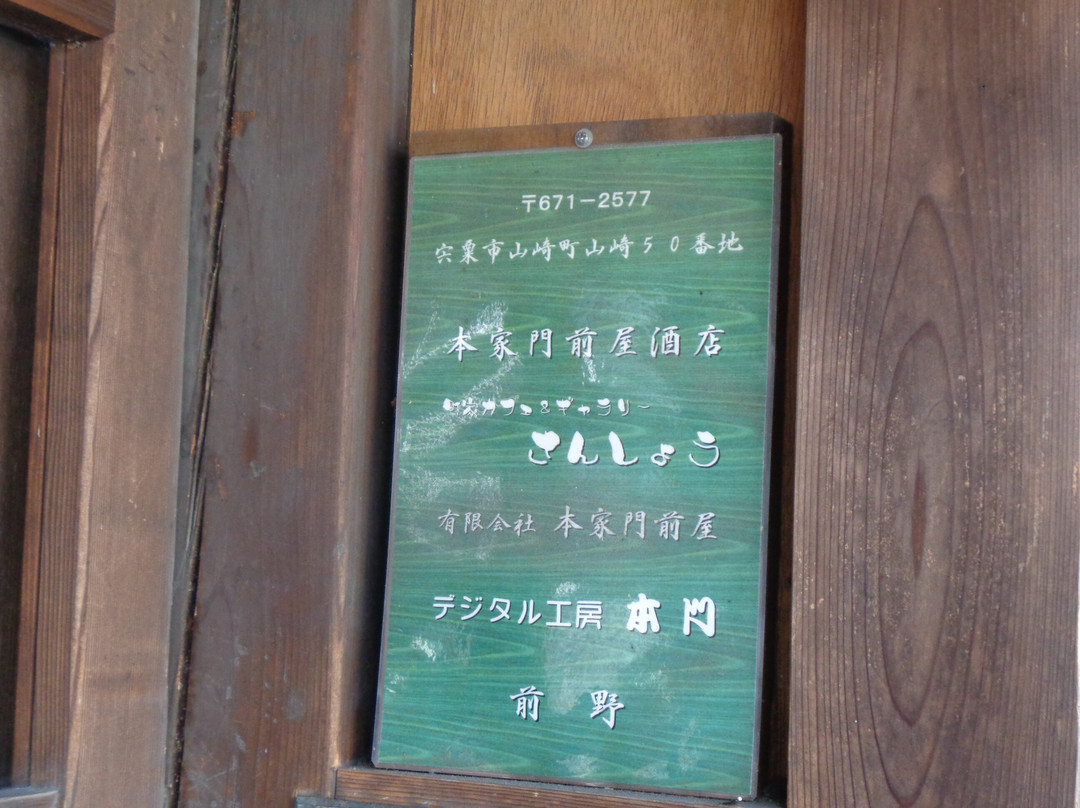 〒671-2577
宍粟市山崎町山崎50番地
本家門前屋酒店
町家カフェ&ギャラリ～
さんしょう
有限会社 本家門前屋
デジタル工房 本门
前野